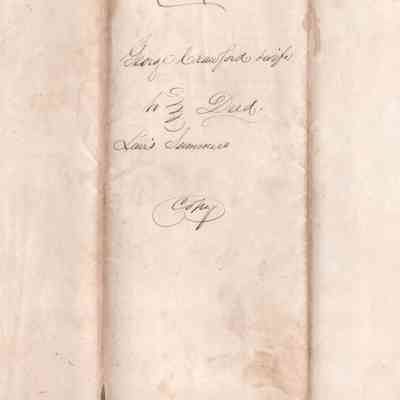 George Crawford & wife
to Deed.
Lewis Summers
Copy